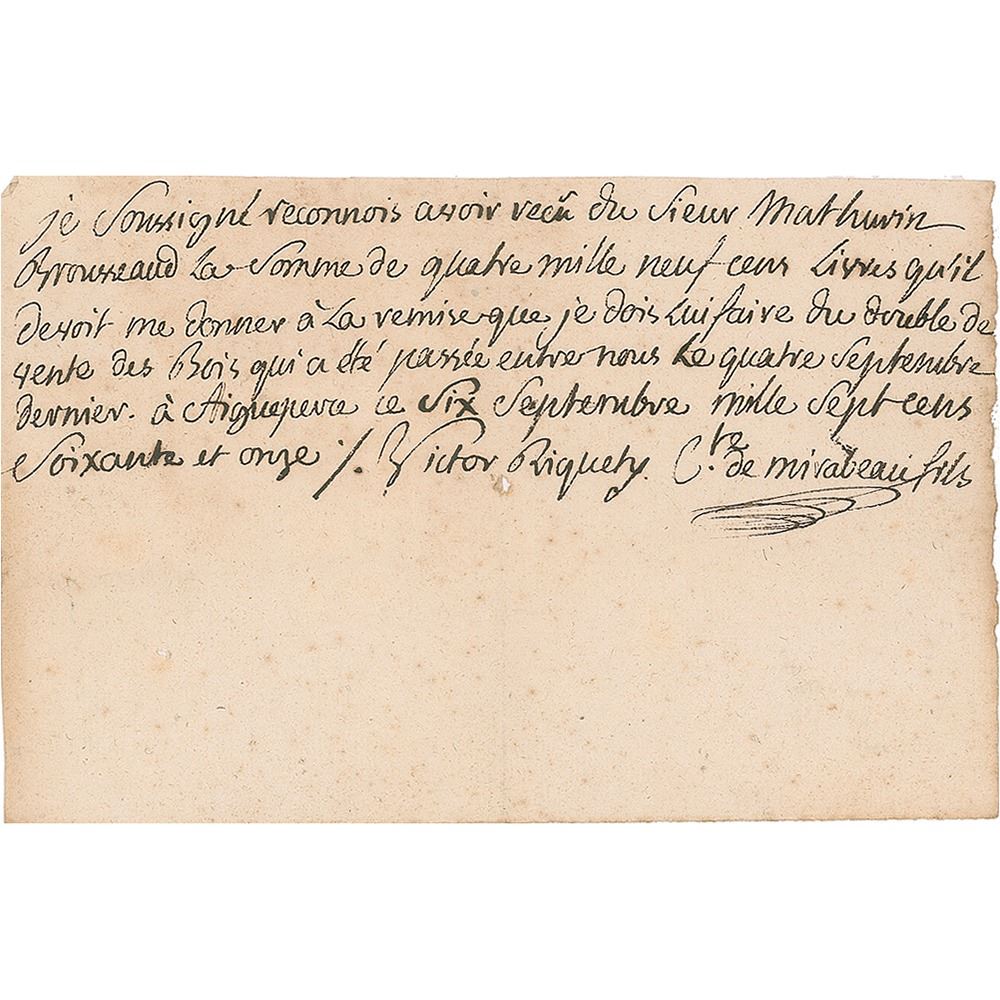 je soussigné reconnois avoir reçû du sieur Mathurin
Brousseaud La somme de quatre mille neuf cens Livres qu'il
devoit me donner à La remise que je dois Lui faire du double de
vente des Bois qui a été passée entre nous Le quatre septembre
dernier. à Aigueperce ce six septembre mille sept cens
soixante et onze /. Victor Riquety. C.te de mirabeau fils